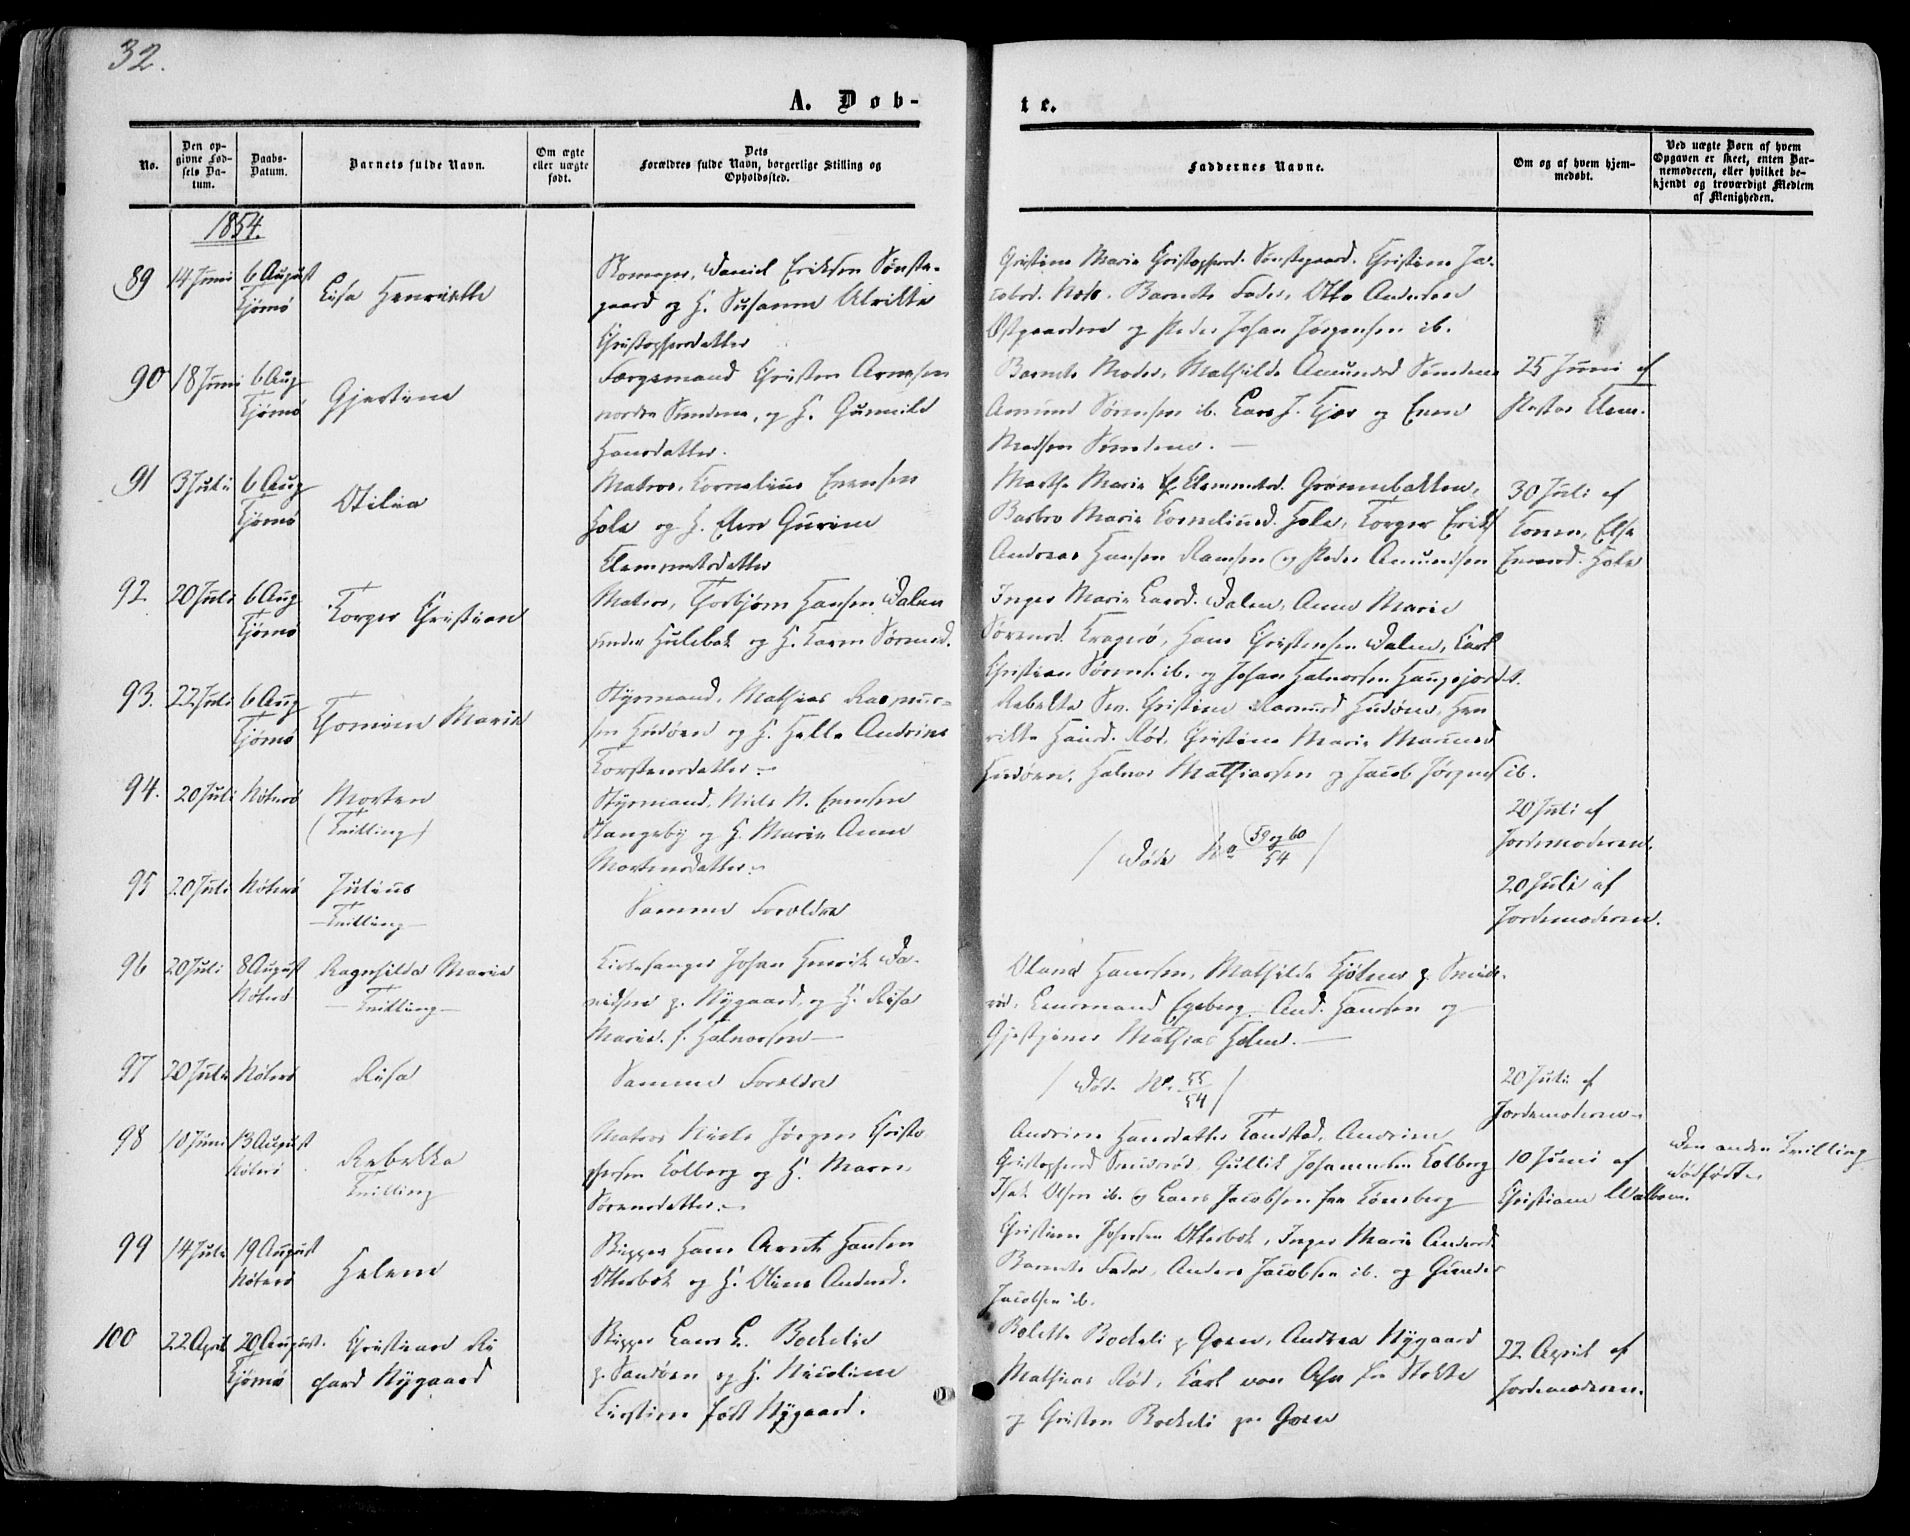 32.
A. Døb-
te.
No.
Den op-
givne Fød-
sels Da-
tum.
Daabs-
Datum.
Barnets fulde Navn.
Om ægte
eller uægte
født.
Dets
Forældres fulde Navn, borgerlige Stilling og
Opholdssted.
Faddernes Navne.
Om og af hvem hjem-
medøbt.
Ved uægte Børn af hvem
Opgaven er skeet, enten Bar-
nemoderen, eller hvilket be-
kjendt og troværdigt Medlem
af Menigheden.
1854.
89
14 Juni
6 August
Tjømø
Lisa Henriette
Skomager, Daniel Eriksen Sønste-
gaard og H. Susanne Ulrikke
Christophersdatter
Christine Marie Christophersd. Sønstegaard. Christine Ja-
cobsd. Barnets Fader, Otto Andersen
Østgaarden og Peder Johan Jørgensen ib.
90
18 Juni
6 Aug
Tjømø
Gjertine
Færgemand Christen Arnesen
nordre Sundene, og H. Gunnild
Hansdatter.
Barnets Moder, Mathilde Amundsd Sundene
Amund Sørensen ib. Lars J. Kjær og Even
Madsen Sundene.
25 Juni af
Pastor Elem.
91
3 Juli
6 Aug
Tjømø
Otilia
Matros, Cornelius Evensen
Hole og H. Elen Gurine
Clemmetsdatter
Marthe Marie Clemmetsd. Grønnebakken,
Barbro Marie Corneliusd. Hole, Torger Eriks
Andreas Hansen Ramsen og Peder Amundsen
30 Juli af
Konen, Else
Evensd. Hole
92
20 Juli
6 Aug
Tjømø
Torger Christian
Matros, Thorbjørn Hansen Dalen
under Hulebak og H. Karen Sørensd.
Inger Marie Larsd. Dalen, Anne Marie
Sørensd. Kragerø, Hans Christensen Dalen, Carl
Christian Sørens. ib. og Johan Halvorsen Haugejordet.
93.
22 Juli
6 Aug
Tjømø
Thomine Marie
Styrmand, Mathias Rasmus-
sen Hudøen og H. Helle Andrine
Torstensdatter
Rebekka Sm. Christine Rasmusd Hudøen, Hen
rikke Hansd. Rød, Christine Marie Mauusd
Hudøen, Halvor Mathiassen og Jacob Jørgens ib.
94.
20 Juli
Nøterø
Morten
(Tvilling)
Styrmand, Niels N. Evensen
Stangeby og H. Maria Anne
Mortensdatter
/ Døde No 59 og 60/54 /
20 Juli af
Jordemoderen.
95
20 Juli
Nøterø
Julius
- Tvilling -
Samme Forældre
20 Juli af
Jordemoderen.
96
20 Juli
8 August
Nøterø
Ragnhilda Marie
- Tvilling -
Kirkesanger Johan Henrik Da-
vidsen p. Nygaard, og H. Risa
Marie f. Halvorsen
Hansen, Mathilde Kjølner p. Smids-
rød. Lensmand Egeberg And. Hansen og
Gjestgiver Mathias Holm.
97
20 Juli
Nøterø
Risa
Samme Forældre
/ Døde No. 55/54 /
20 Juli af
Jordemoderen
98
10 Juni
13 August
Nøterø
Rebekka
Tvilling
Matros Niels Jørgen Christo
phersen Kolberg og H. Maren
Sørensdatter
Andrine Hansdatter Tandstad, Andrine
Christophersd Smidsrød, Gullik Johannesen Kolberg
Isak Olsen ib. og Lars Jacobsen fra Tønsberg
10 Juni af
Christiane Walbom.
Den anden Tvilling
dødfødt
99
14 Juli
19 August
Nøterø
Helene
Skipper Hans Arnt Hansen
Otterbek og H. Oline Andersd.
Christine Johnsen Otterbek, Inger Marie Andersd.
Barnets Fader, Anders Jacobsen ib. og Gunder
Jacobsen ib.
100
22 April
20 August.
Tjømø
Christiane Ri
chard Nygaard
Skipper Lars L. Bockelie
p. Sandøen og H. Nicoline
Kirstine født Nygaard.
Bolette Bockeli p Goen, Andrea Nygaard
Mathias Rød, Carl von fra Stokke
og Christen Bockeli paa Goen
22 April af
Jordemoderen.